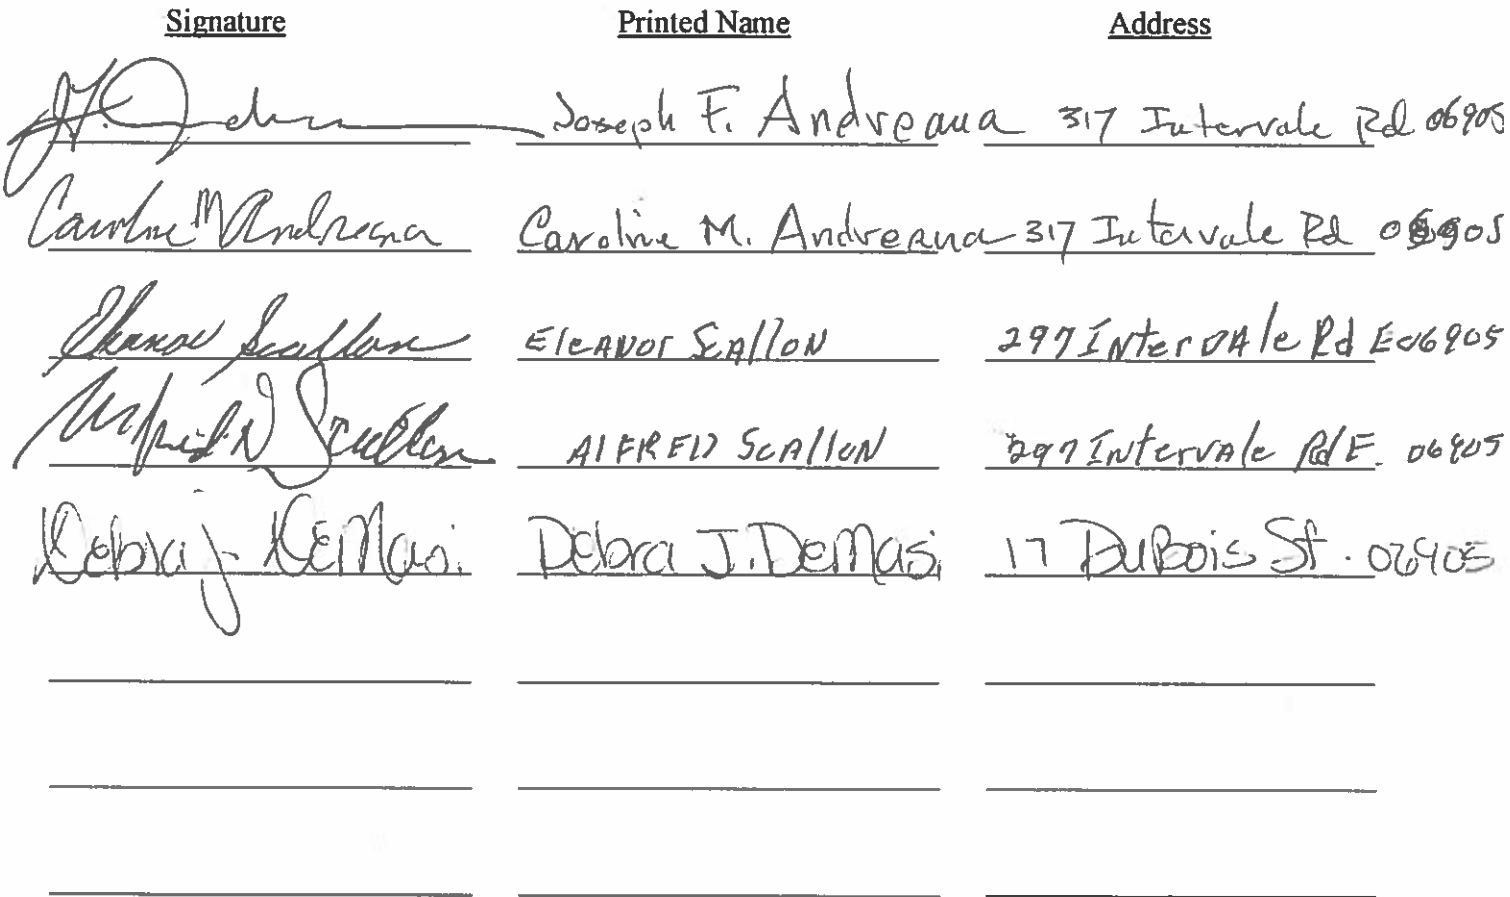 Signature Printed Name Address
J.F. Andreana Joseph F. Andreana 317 Intervale Rd 06905
Caroline M Andreana Caroline M. Andreana 317 Intervale Rd 06905
Eleanor Scallon Eleanor Scallon 297 Intervale Rd E 06905
Alfred N Scallon Alfred Scallon 297 Intervale Rd E. 06905
Debra J. DeMasi Debra J. DeMasi 17 DuBois St. 06905